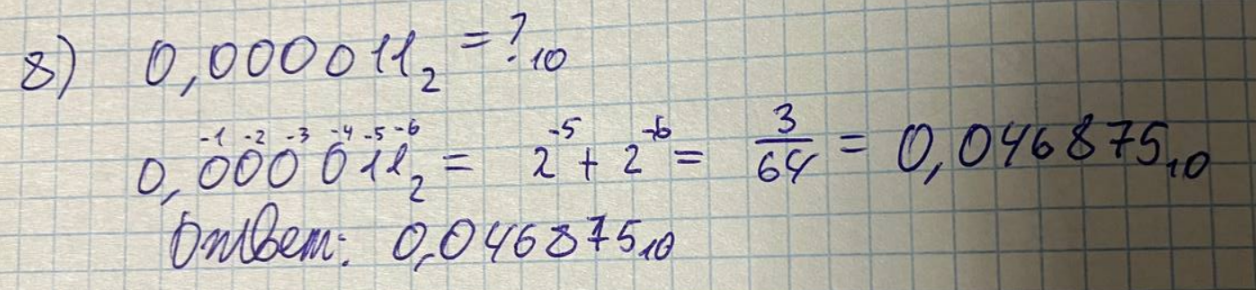 8) 0,000011₂ = ?₁₀
-1 -2 -3 -4 -5 -6
0,000011₂ = 2⁻⁵ + 2⁻⁶ = 3/64 = 0,046875₁₀
Ответ: 0,046875₁₀